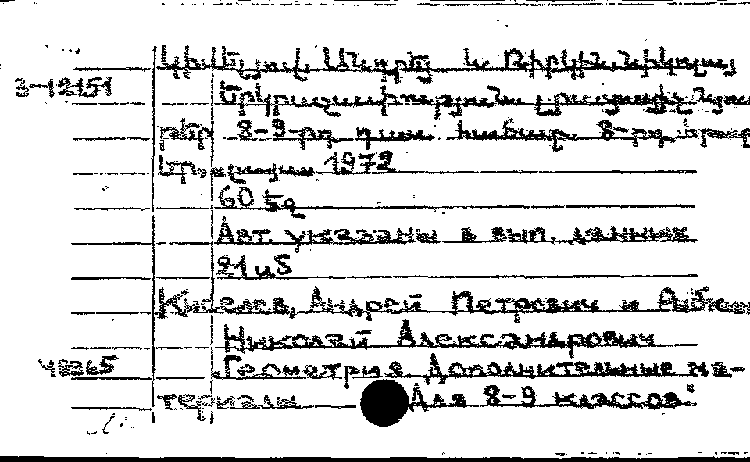 Կիսելյով, Անդրեյ և Ռիբկին, Նիկոլայ
3-12151
Երկրաչափություն լրացուցիչ նյու
թեր 8-9-րդ դաս. համար. 8-րդ
1972
60 էջ
Авт. указаны в вып. данных
21 и5
Киселев, Андрей Петрович и Рыбкин
Николай Александрович
48365
Геометрия. Дополнительные ма-
териалы Для 8-9 классов.